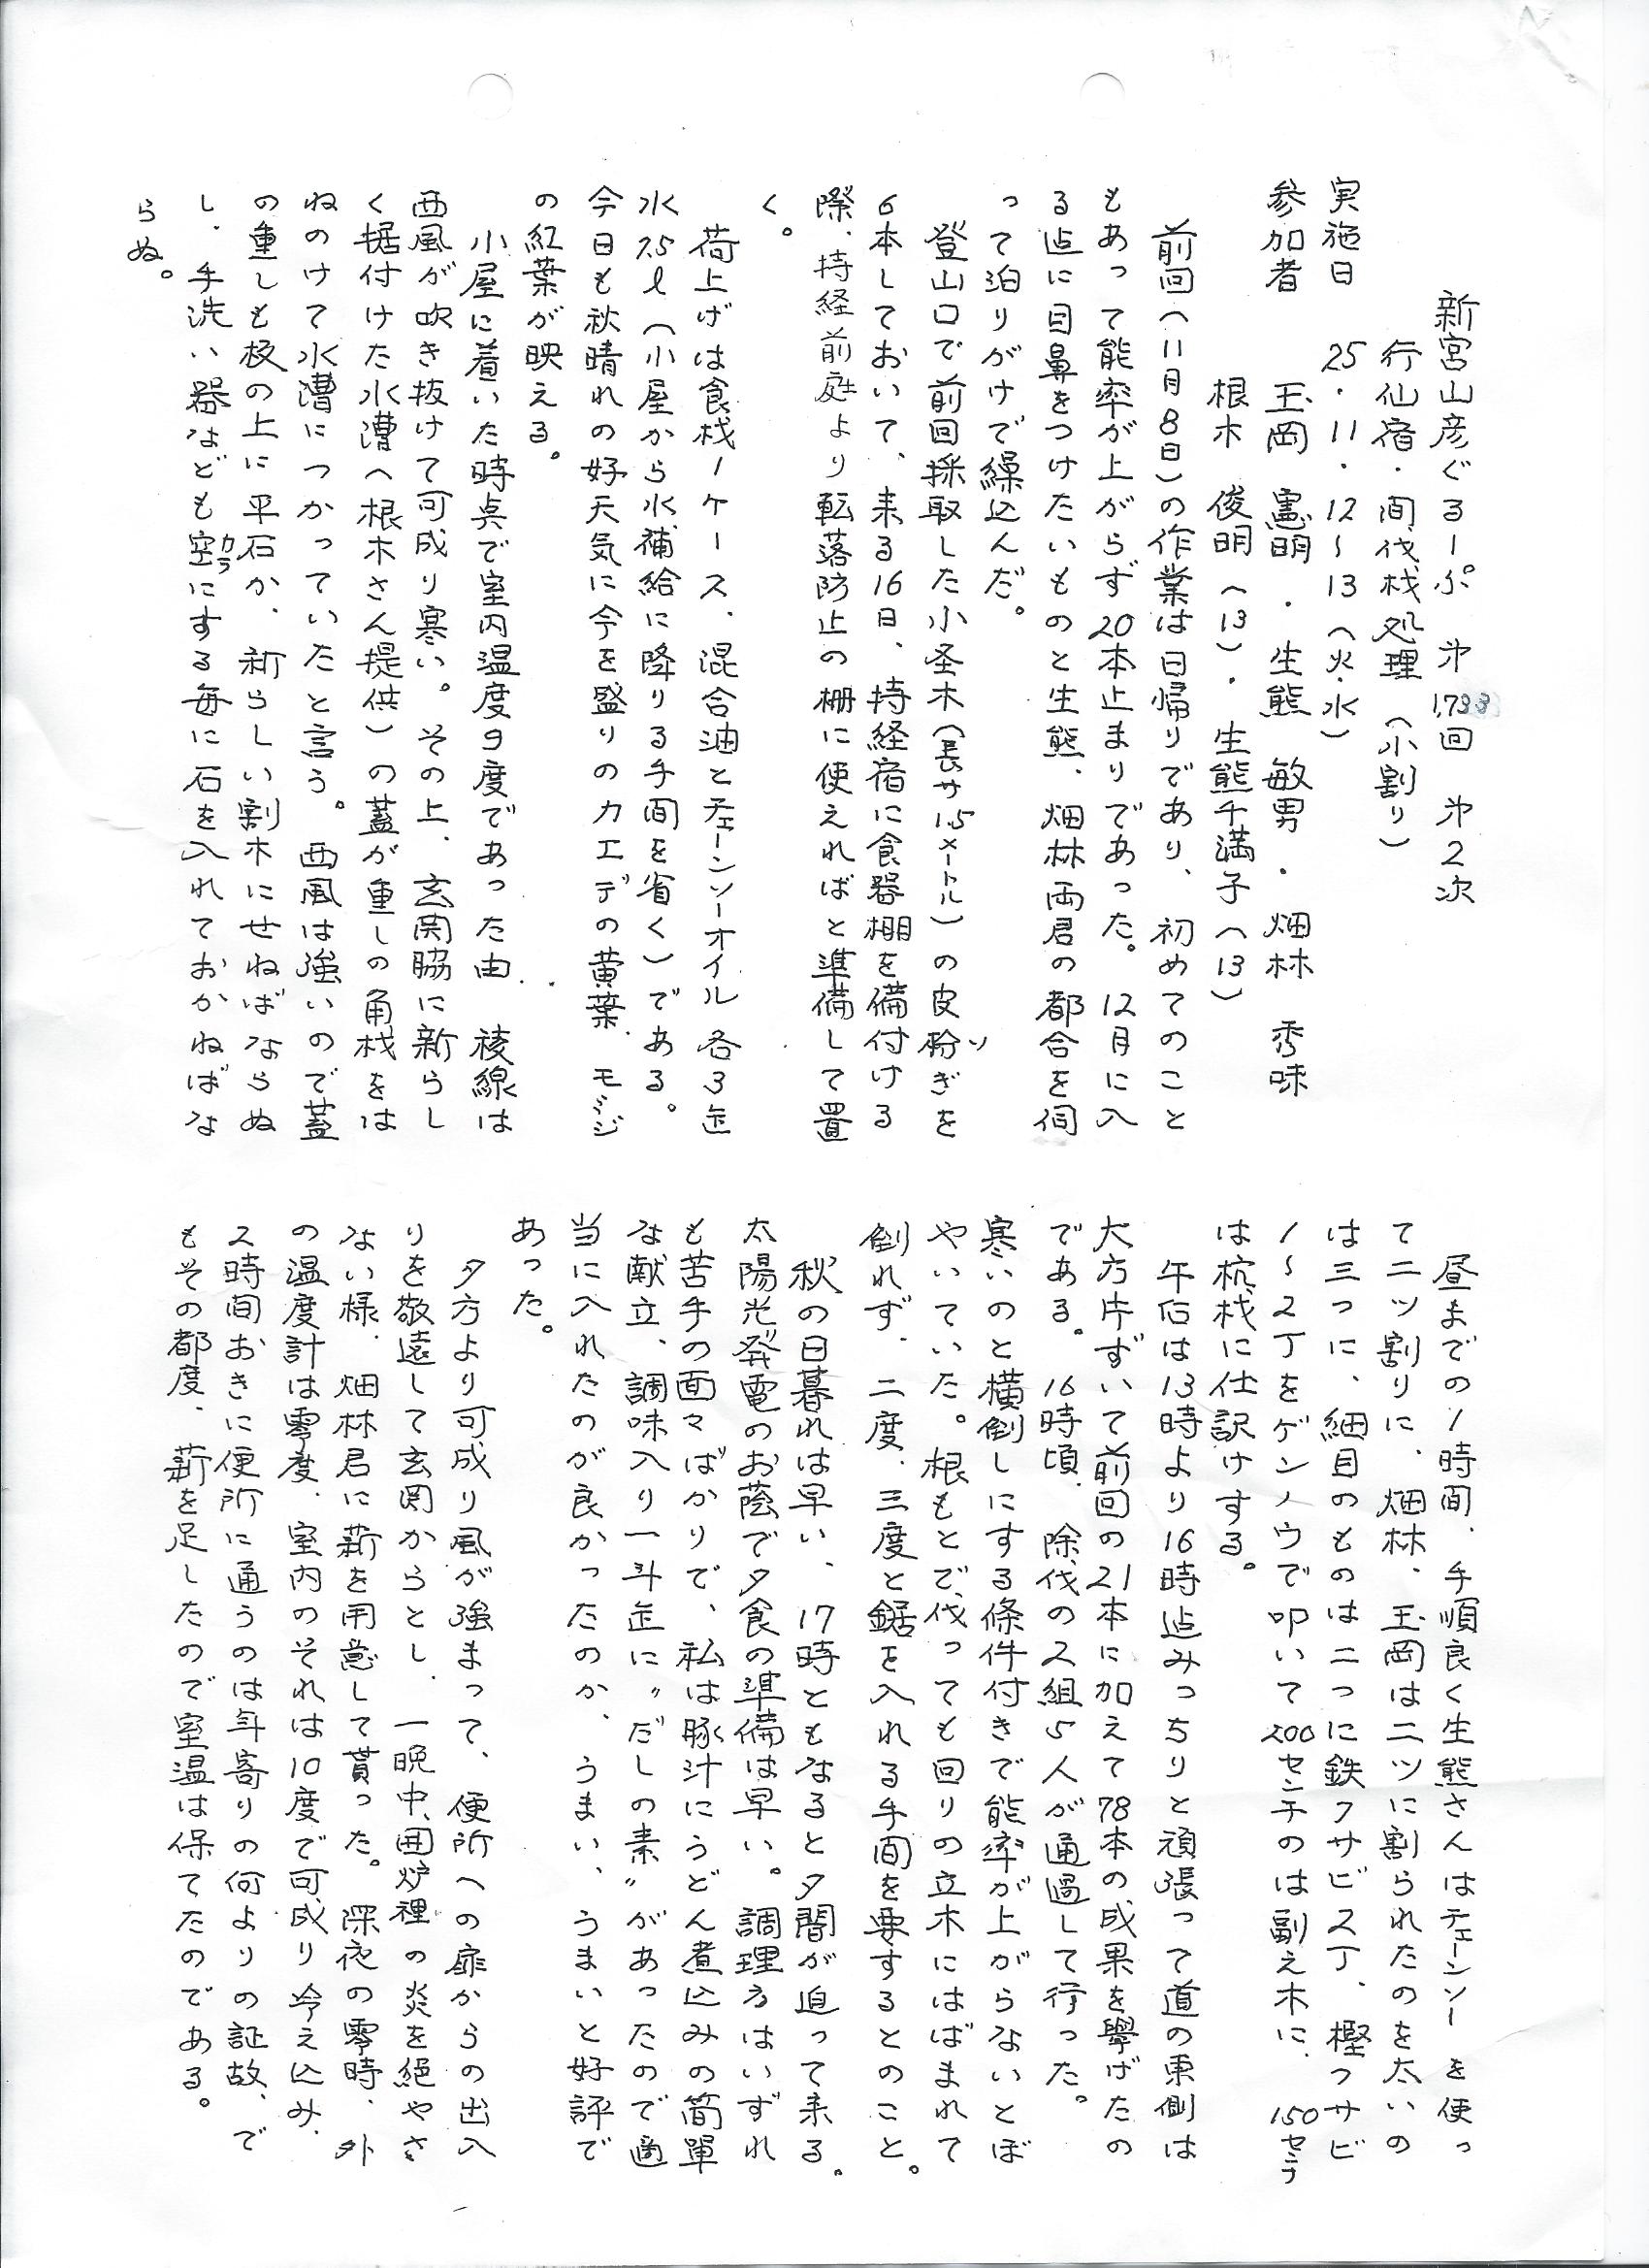 新宮山彦ぐるーぷ 㐧1,733回 㐧2次
行仙宿・間伐材処理(小割り)
実施日 25・11・12〜13(火・水)
参加者 玉岡 憲明・生熊 敏男・畑林 秀味
根木 俊明(13)・生熊千満子(13)
前回(11月8日)の作業は日帰りであり、初めてのこと
もあって能率が上がらず20本止まりであった。12月に入
る迠に目鼻をつけたいものと生熊、畑林両君の都合を伺
って泊りがけで繰込んだ。
登山口で前回採取した小圣木(長サ1.5メートル)の皮聁ソぎを
6本しておいて、来る16日、持経宿に食器棚を備付ける
際、持経前庭より転落防止の柵に使えればと準備して置
く。
荷上げは食材1ケース、混合油とチェーンソーオイル各3缶
水7.5ℓ(小屋から水補給に降りる手間を省く)である。
今日も秋晴れの好天気に今を盛りのカエデの黄葉、モミジ
の紅葉が映える。
小屋に着いた時点で室内温度9度であった由 稜線は
西風が吹き抜けて可成り寒い。その上、玄関脇に新らし
く据付けた水漕へ根木さん提供)の蓋が重しの角材をは
ねのけて水漕につかっていたと言う。西風は強いので蓋
の重しも板の上に平石か、新らしい割木にせねばならぬ
し、手洗い器なども空カラにする毎に石を入れておかねばな
らぬ。
昼までの1時間、手順良く生熊さんはチェーンソーを使っ
て二ツ割りに、畑林、玉岡は二ツに割られたのを太いの
は三つに、細目のものは二つに鉄クサビ2丁、樫クサビ
1〜2丁をゲンノウで叩いて200センチのは副え木に、150センチ
は杭材に仕訳けする。
午后は13時より16時迠みっちりと頑張って道の東側は
大方片ずいて前回の21本に加えて78本の成果を擧げたの
である。16時頃、除伐の2組5人が通過して行った。
寒いのと横倒しにする條件付きで能率が上がらないとぼ
やいていた。根もとで伐っても回りの立木にはばまれて
倒れず、二度、三度と鋸を入れる手間を要するとのこと。
秋の日暮れは早い、17時ともなると夕闇が迫って来る。
太陽光発電のお蔭で夕食の準備は早い。調理方はいずれ
も苦手の面々ばかりで、私は豚汁にうどん煮込みの簡單
な献立、調味入り一斗缶に〃だしの素〃があったので適
当に入れたのが良かったのか、うまい、うまいと好評で
あった。
夕方より可成り風が強まって、便所への扉からの出入
りを敬遠して玄関からとし、一晩中、囲炉裡の炎を絶やさ
ない様、畑林君に薪を用意して貰った。深夜の零時、外
の温度計は零度、室内のそれは10度で可成り冷え込み、
2時間おきに便所に通うのは年寄りの何よりの証故、で
もその都度、薪を足したので室温は保てたのである。